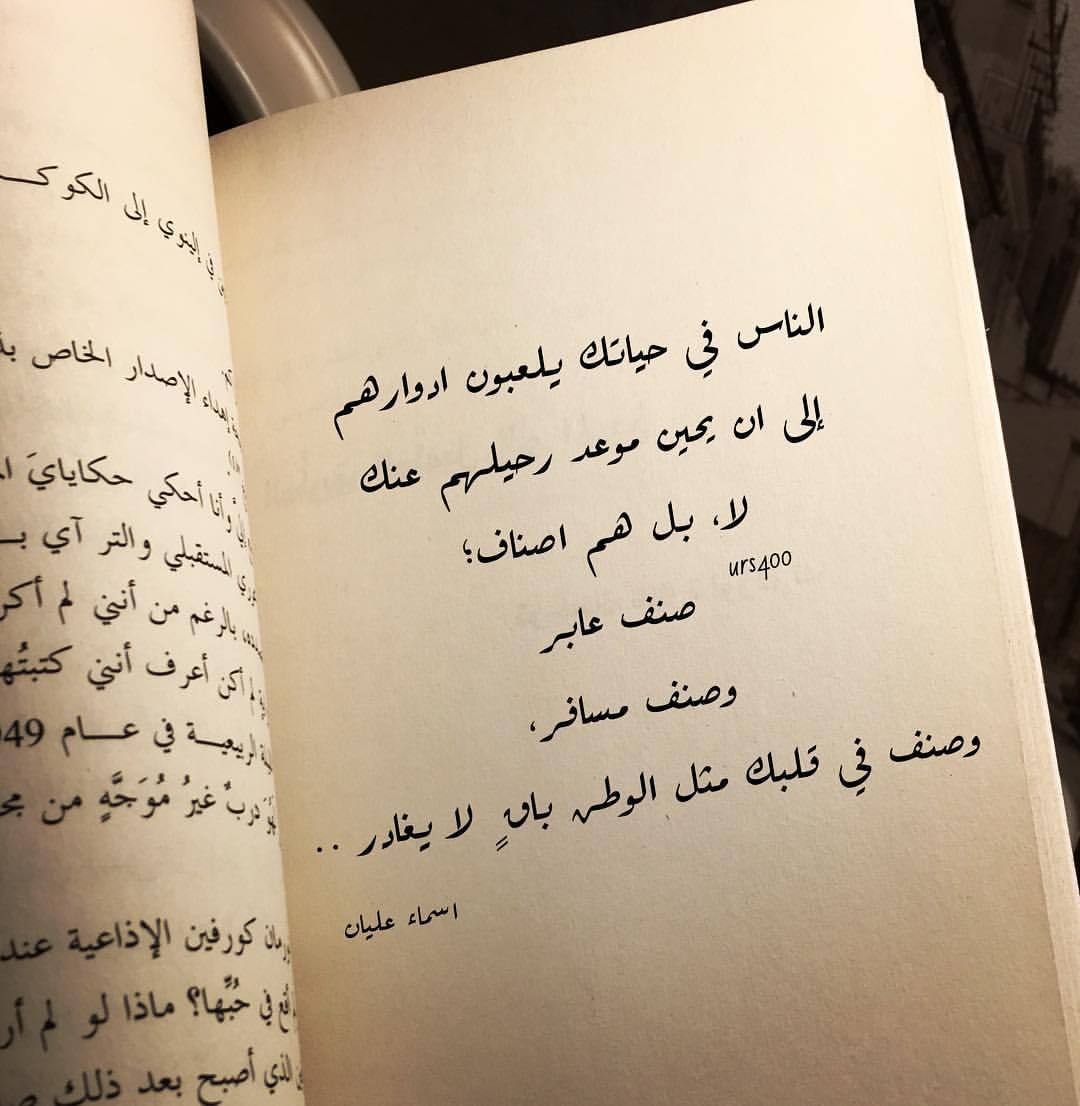 الناس في حياتك يلعبون ادوارهم
إلى ان يحين موعد رحيلهم عنك
لا، بل هم اصناف؛
urs400
صنف عابر
وصنف مسافر،
وصنف في قلبك مثل الوطن باقٍ لا يغادر ..
اسماء عليان
في إلينوي إلى الكوكـ
إهداء الإصدار الخاص
وأنا أحكي حكايايَ
المستقبلي والتر آي بـ
بالرغم من أنني لم أكن
لم أكن أعرف أنني كتبتُها
الربيعية في عام 949
دربٌ غيرُ مُوَجَّهٍ من
كورفين الإذاعية عند
أقع في حُبِّها؟ ماذا لو لم أر
الذي أصبح بعد ذلك